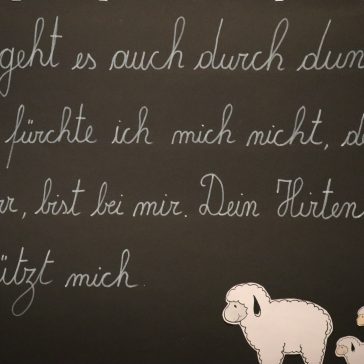 geht es auch durch dun
fürchte ich mich nicht, de
rr, bist bei mir. Dein Hirten
ützt mich